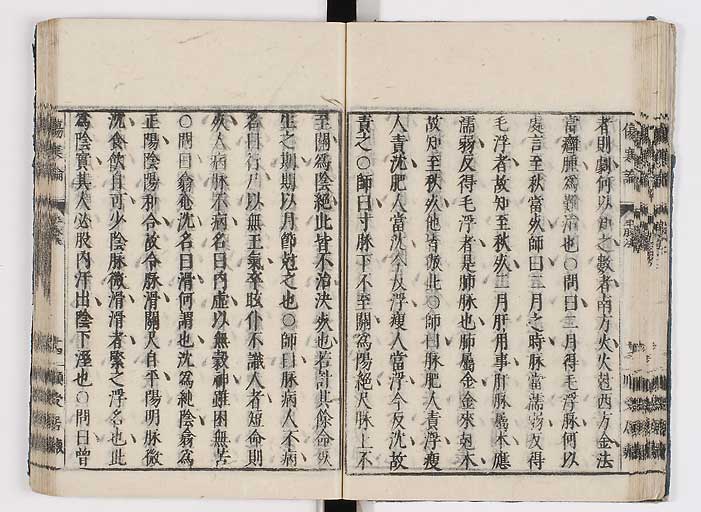 者則劇何以知之數者南方火火尅西方金法
當癰腫爲難治也○問曰二月得毛浮脉何以
處言至秋當死師曰二月之時脉當濡弱反得
毛浮者故知至秋死二月肝用事肝脉屬木應
濡弱反得毛浮者是肺脉也肺屬金金來尅木
故知至秋死他皆倣此○師曰脉肥人責浮瘦
人責沈肥人當沈今反浮瘦人當浮今反沈故
責之○師曰寸脉下不至關爲陽絕尺脉上不
至關爲陰絕此皆不治決死也若計其餘命死
生之期期以月節尅之也○師曰脉病人不病
名曰行尸以無王氣卒眩仆不識人者短命則
死人病脉不病名曰內虛以無穀神雖困無苦
○問曰翕奄沈名曰滑何謂也沈爲純陰翕爲
正陽陰陽和合故令脉滑關尺自平陽明脉微
沈食飲自可少陰脉微滑滑者緊之浮名也此
爲陰實其人必股內汗出陰下溼也○問曰曾
傷寒論